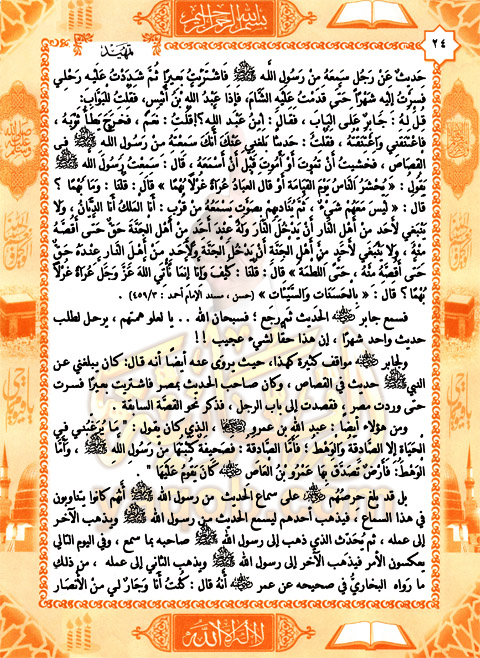 بسم الله الرحمن الرحيم
٢٤
تمهيد
حَدِيثٌ عَنْ رَجُلٍ سَمِعَهُ مِنْ رَسُولِ اللَّه ﷺ فَاشْتَرَيْتُ بَعِيرًا ثُمَّ شَدَدْتُ عَلَيْهِ رَحْلِي
فَسِرْتُ إِلَيْهِ شَهْرًا حَتَّى قَدِمْتُ عَلَيْهِ الشَّامَ، فَإِذَا عَبْدُ اللَّهِ بْنُ أُنَيْسٍ، فَقُلْتُ لِلْبَوَّابِ:
قُلْ لَهُ: جَابِرٌ عَلَى البَابِ، فَقَالَ: ابْنُ عَبْدِ اللَّهِ؟! قُلْتُ: نَعَمْ، فَخَرَجَ يَطَأُ ثَوْبَهُ،
فَاعْتَنَقَنِي وَاعْتَنَقْتُهُ، فَقُلْتُ: حَدِيثًا بَلَغَنِي عَنْكَ أَنَّكَ سَمِعْتَهُ مِنْ رَسُولِ اللَّهِ ﷺ فِي
القِصَاصِ، فَخَشِيتُ أَنْ تَمُوتَ أَوْ أَمُوتَ قَبْلَ أَنْ أَسْمَعَهُ، قَالَ: سَمِعْتُ رَسُولَ اللَّهِ ﷺ
يَقُولُ: « يُحْشَرُ النَّاسُ يَوْمَ القِيَامَةِ أَوْ قَالَ العِبَادُ عُرَاةً غُرْلًا بُهْمًا » قَالَ: قُلْنَا: وَمَا بُهْمًا؟
قَالَ: « لَيْسَ مَعَهُمْ شَيْءٌ، ثُمَّ يُنَادِيهِمْ بِصَوْتٍ يَسْمَعُهُ مِنْ قُرْبٍ: أَنَا المَلِكُ أَنَا الدَّيَّانُ، وَلَا
يَنْبَغِي لِأَحَدٍ مِنْ أَهْلِ النَّارِ أَنْ يَدْخُلَ النَّارَ وَلَهُ عِنْدَ أَحَدٍ مِنْ أَهْلِ الجَنَّةِ حَقٌّ حَتَّى أَقُصَّهُ
مِنْهُ، وَلَا يَنْبَغِي لِأَحَدٍ مِنْ أَهْلِ الجَنَّةِ أَنْ يَدْخُلَ الجَنَّةَ وَلِأَحَدٍ مِنْ أَهْلِ النَّارِ عِنْدَهُ حَقٌّ
حَتَّى أَقُصَّهُ مِنْهُ، حَتَّى اللَّطْمَةَ » قَالَ: قُلْنَا: كَيْفَ وَإِنَّا إِنَّمَا نَأْتِي اللَّهَ عَزَّ وَجَلَّ عُرَاةً غُرْلًا
بُهْمًا؟ قَالَ: « بِالحَسَنَاتِ وَالسَّيِّئَاتِ » (حسن، مسند الإمام أحمد: ٤٥٩/٣)
فسمع جابر الحديث ثم رجع؛ فسبحان الله .. يا لعلو هممهم، يرحل لطلب
حديث واحد شهرًا، إن هذا حقًا لشيء عجيب !!
ولجابر مواقف كثيرة كهذا، حيث يروى عنه أيضًا أنه قال: كان يبلغني عن
النبي ﷺ حديث في القصاص، وكان صاحب الحديث بمصر فاشتريت بعيرًا فسرت
حتى وردت مصر، فقصدت إلى باب الرجل، فذكر نحو القصَّة السابقة.
ومن هؤلاء أيضًا: عبد الله بن عمرو، الذي كان يقول: "مَا يُرَغِّبُنِي فِي
الحَيَاةِ إِلَّا الصَّادِقَةُ وَالوَهْطُ؛ فَأَمَّا الصَّادِقَةُ: فَصَحِيفَةٌ كَتَبْتُهَا مِنْ رَسُولِ اللَّهِ ﷺ، وَأَمَّا
الوَهْطُ: فَأَرْضٌ تَصَدَّقَ بِهَا عَمْرُو بْنُ العَاصِ كَانَ يَقُومُ عَلَيْهَا".
بل قد بلغ حرصهُمْ على سماع الحديث من رسول الله ﷺ أنَّهم كانوا يتناوبون
في هذا السماع، فيذهب أحدهم ليسمع الحديث من رسول الله ﷺ ويذهب الآخر
إلى عمله، ثم يُحدِّث الذي ذهب إلى رسول الله ﷺ صاحبه بما سمع، وفي اليوم التالي
يعكسون الأمر فيذهب الآخر إلى رسول الله ﷺ ويذهب الثاني إلى عمله، من ذلك
ما رواه البخاريُّ في صحيحه عن عمر أنَّه قال: كُنْتُ أَنَا وَجَارٌ لِي مِنَ الأَنْصَارِ
لا إله إلا الله